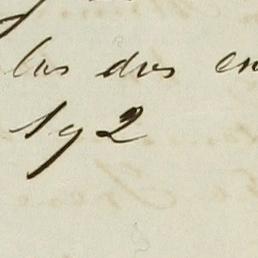 las dos en
1 y 2